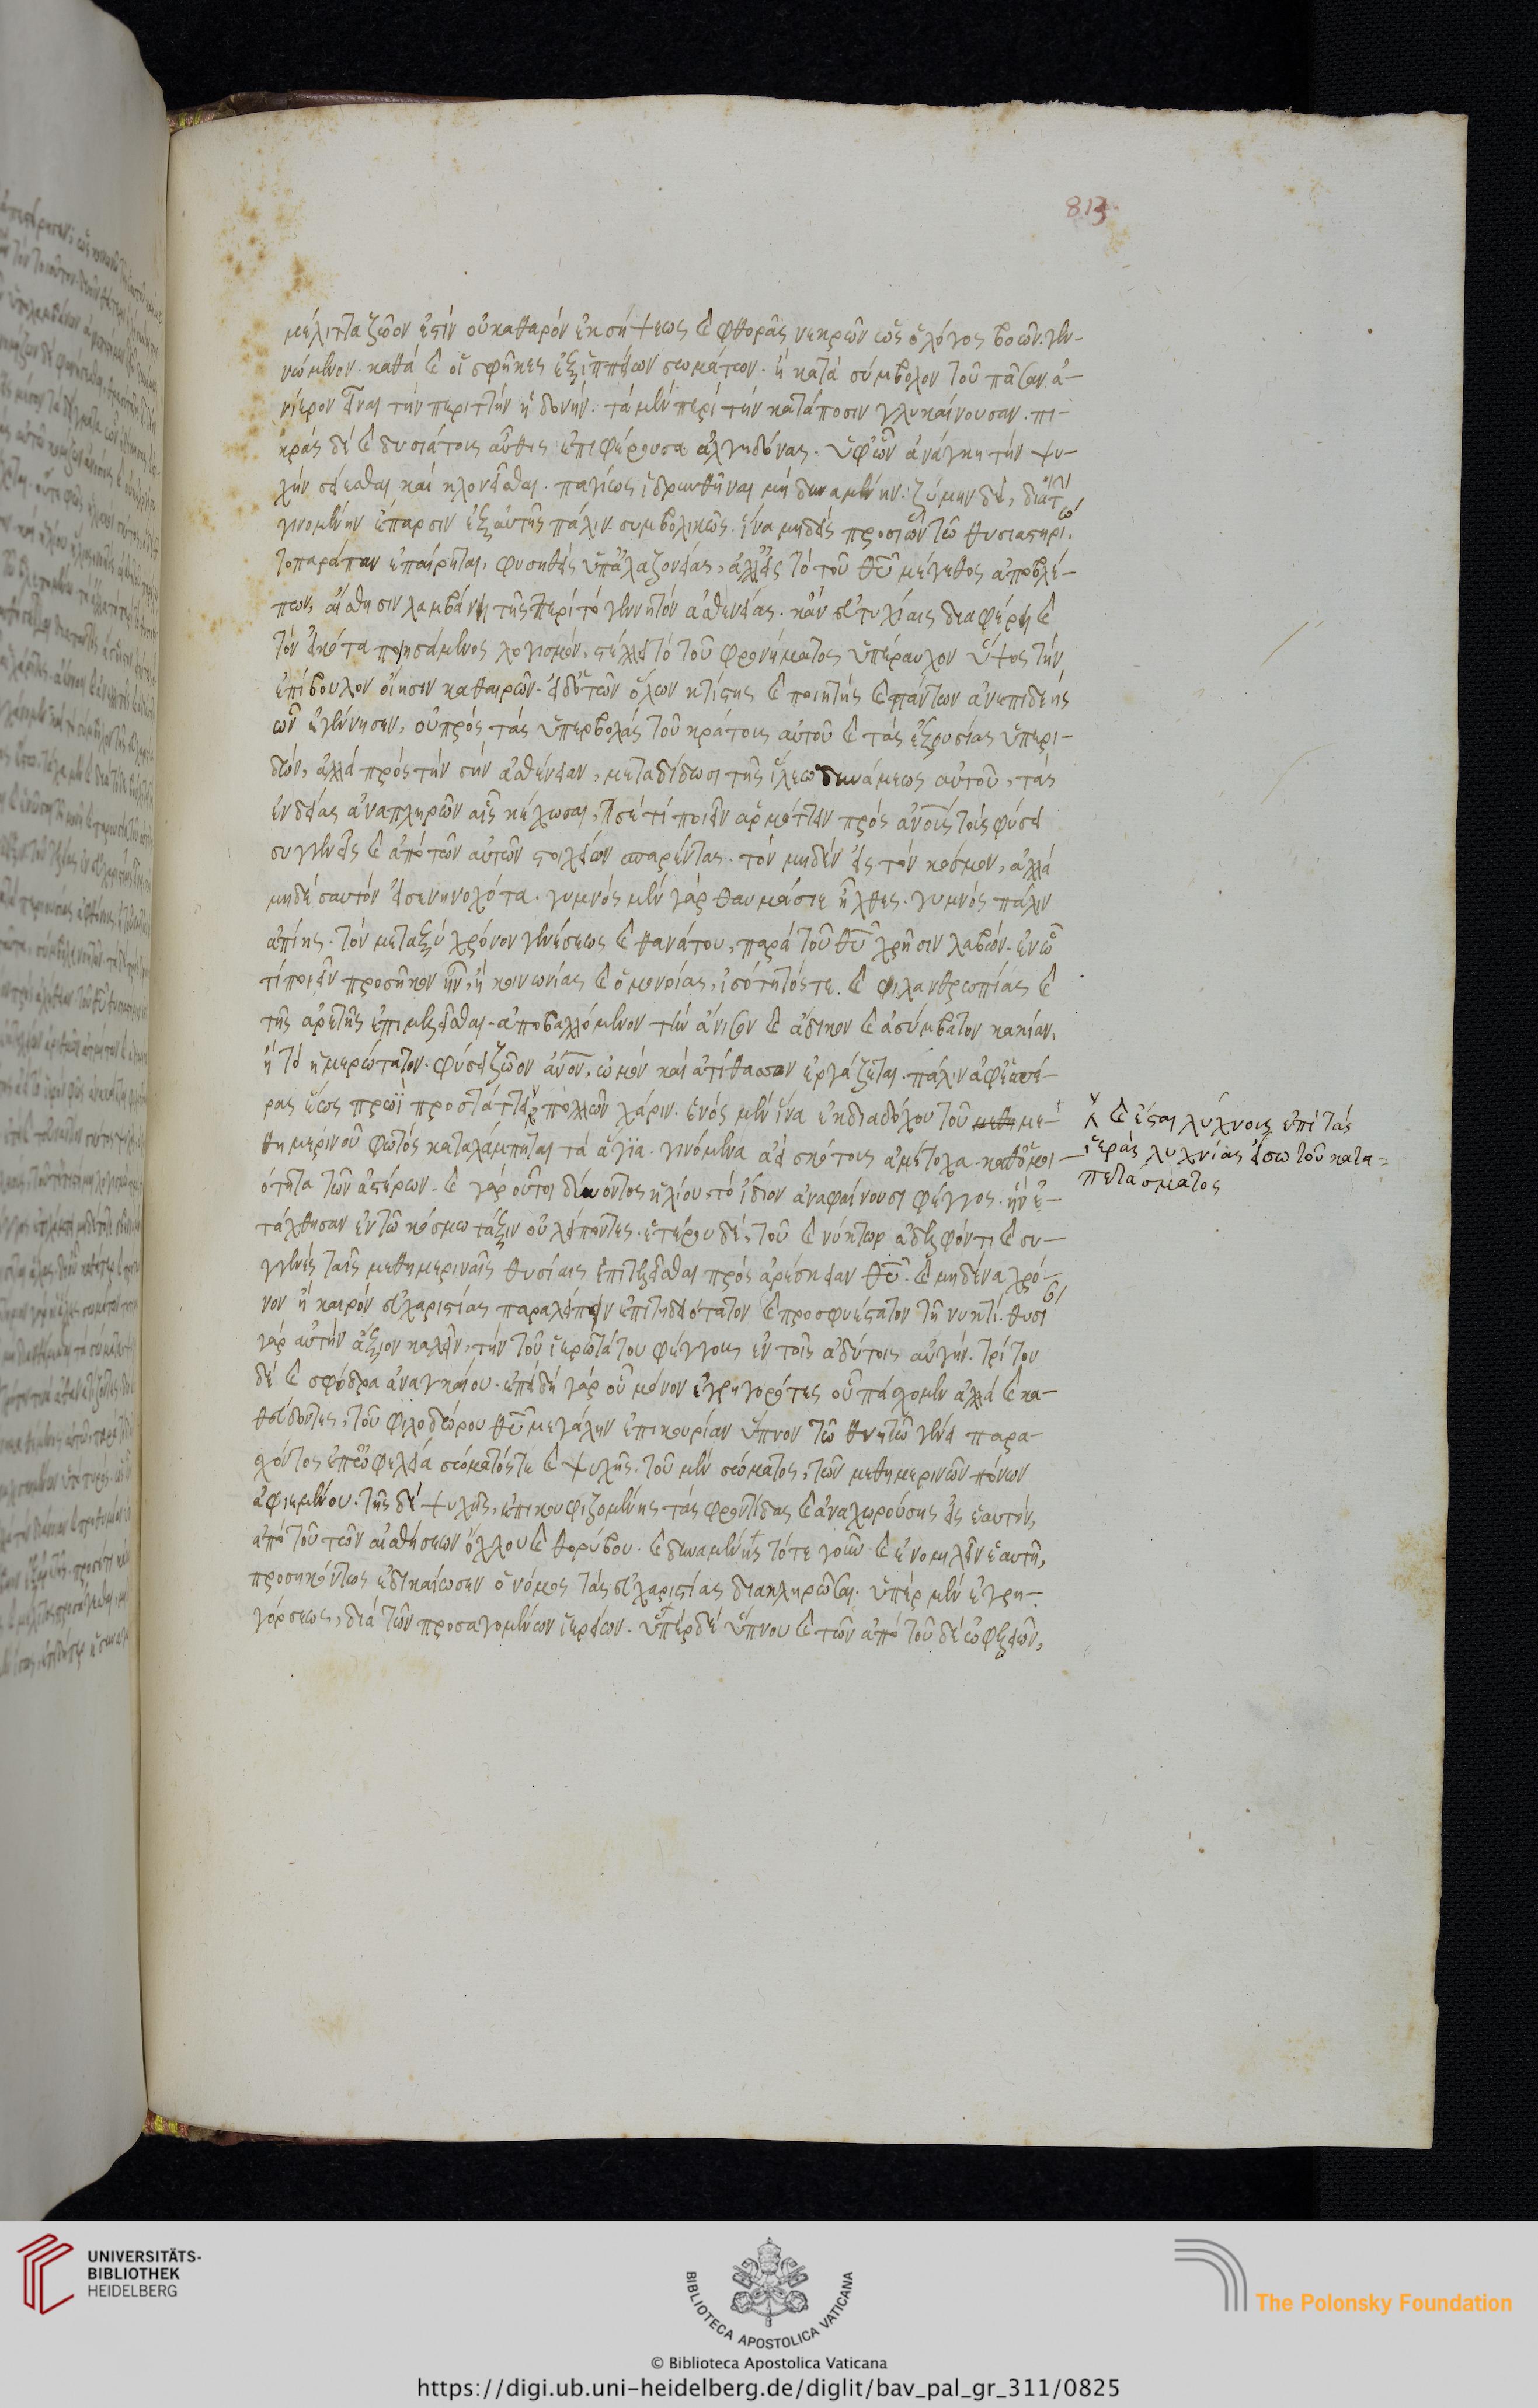 813
μέλιττα ζῶον ἐστὶν οὐ καθαρὸν ἐκ σήψεως καὶ φθορᾶς νεκρῶν ὡς ὁ λόγος βοῶν γεν-
νώμενον. καθὰ καὶ οἱ σφῆκες ἐξ ἱππείων σωμάτων. ἢ κατὰ σύμβολον τοῦ πᾶσαν ἀ-
νίερον εἶναι τὴν περιττὴν ἡδονήν. τὰ μὲν περὶ τὴν κατάποσιν γλυκαίνουσαν. πι-
κρὰς δὲ καὶ δυσιάτους αὖθις ἐπιφέρουσα ἀλγηδόνας. ὑφ' ὧν ἀνάγκη τὴν ψυ-
χὴν σείεσθαι καὶ κλονεῖσθαι. παγίως ἱδρυνθῆναι μὴ δυναμένην. ζύμην δὲ, διὰ τὴν
γινομένην ἔπαρσιν ἐξ αὐτῆς πάλιν συμβολικῶς. ἵνα μηδεὶς προσιὼν τῷ θυσιαστηρίῳ
τοπαράπαν ἐπαίρηται, φυσηθεὶς ὑπ' ἀλαζονείας, ἀλλ' εἰς τὸ τοῦ θυ μέγεθος ἀποβλέ-
πων, αἴσθησιν λαμβάνῃ τῆς περὶ τὸ γεννητὸν ἀσθενείας. κἂν εὐτυχίαις διαφέρῃ καὶ
τὸν εἰκότα ποιησάμενος λογισμὸν, στέλλει τὸ τοῦ φρονήματος ὑπέραυχον ὕψος τὴν
ἐπίβουλον οἴησιν καθαιρῶν. εἰ δὲ ὁ τῶν ὅλων κτίστης καὶ ποιητὴς καὶ πάντων ἀνεπιδεὴς
ὧν ἐγέννησεν, οὐ πρὸς τὰς ὑπερβολὰς τοῦ κράτους αὐτοῦ καὶ τὰς ἐξουσίας ὑπερι-
δὼν, ἀλλὰ πρὸς τὴν σὴν ἀσθένειαν, μεταδίδωσι τῆς ἵλεω δυνάμεως αὐτοῦ, τὰς
ἐνδείας ἀναπληρῶν αἷς κέχρησαι, σέ τί ποιεῖν ἁρμόττειν πρὸς ἀνους τοὺς φύσει
συγγενεῖς καὶ ἀπὸ τῶν αὐτῶν στοιχείων σπαρέντας. τὸν μηδὲν εἰς τὸν κόσμον, ἀλλὰ
μηδὲ σαυτὸν εἰσενηνοχότα. γυμνὸς μὲν γὰρ θαυμάσιε ἦλθες. γυμνὸς πάλιν
ἀπίῃς. τὸν μεταξὺ χρόνον γενέσεως καὶ θανάτου, παρὰ τοῦ θυ χρῆσιν λαβών. ἐν ᾧ
τί ποιεῖν προσῆκον ἦν, ἢ κοινωνίας καὶ ὁμονοίας, ἰσότητός τε. καὶ φιλανθρωπίας καὶ
τῆς ἀρετῆς ἐπιμελεῖσθαι. ἀποβαλλόμενον τὴν ἄνισον καὶ ἄδικον καὶ ἀσύμβατον κακίαν,
ἣ τὸ ἡμερώτατον. φύσει ζῶον ἄνον, ὠμὸν καὶ ἀτίθασσον ἐργάζεται. πάλιν ἀφ' ἑσπέ-
ρας ἕως πρωῒ προστάττει πολλῶν χάριν. ἑνὸς μὲν ἵνα ἐκ διαδόχου τοῦ μεθη με-
θημερινοῦ φωτὸς καταλάμπηται τὰ ἅγια. γινόμενα ἀεὶ σκότους ἀμέτοχα. καθ' ὁμοι-
ότητα τῶν ἀστέρων. καὶ γὰρ οὗτοι δύνοντος ἡλίου, τὸ ἴδιον ἀναφαίνουσι φέγγος. ἣν ἐ-
τάχθησαν ἐν τῷ κόσμῳ τάξιν οὐ λείποντες. ἑτέρου δὲ, τοῦ καὶ νύκτωρ ἀδελφόν τι καὶ συ-
γγενὲς ταῖς μεθημεριναῖς θυσίαις ἐπιτελεῖσθαι πρὸς ἀρέσκειαν θυ. καὶ μηδένα χρό-
νον ἢ καιρὸν εὐχαριστίας παραλείπειν ἐπιτηδειότατον καὶ προσφυέστατον τῇ νυκτί. θυσί
γὰρ αὐτὴν ἄξιον καλεῖν, τὴν τοῦ ἱερωτάτου φέγγους ἐν τοῖς ἀδύτοις αὐγήν. τρίτου
δὲ καὶ σφόδρα ἀναγκαίου. ἐπειδὴ γὰρ οὐ μόνον ἐγρηγορότες εὖ πάσχομεν ἀλλὰ καὶ κα-
θεύδοντες, τοῦ φιλοδώρου θυ μεγάλην ἐπικουρίαν ὕπνον τῷ θνητῷ γένει παρα-
σχόντος ἐπ' ὠφελείᾳ σώματός τε καὶ ψυχῆς. τοῦ μὲν σώματος, τῶν μεθημερινῶν πόνων
ἀφιεμένου. τῆς δὲ ψυχῆς, ἐπικουφιζομένης τὰς φροντίδας καὶ ἀναχωρούσης εἰς ἑαυτὴν,
ἀπὸ τοῦ τῶν αἰσθήσεων ὄχλου καὶ θορύβου. καὶ δυναμένης τότε γοῦν καὶ ἐνομιλεῖν ἑαυτῇ,
προσηκόντως ἐδικαίωσεν ὁ νόμος τὰς εὐχαριστίας διακληρῶσαι. ὑπὲρ μὲν ἐγρη-
γόρσεως, διὰ τῶν προσαγομένων ἱερείων. ὑπὲρ δὲ ὕπνου καὶ τῶν ἀπὸ τοῦδε ὠφελειῶν,
καὶ εσαι λύχνους ἐπὶ τὰς
ἱερὰς λυχνίας εἴσω τοῦ κατα=
πετάσματος
UNIVERSITÄTS-
BIBLIOTHEK
HEIDELBERG
BIBLIOTECA APOSTOLICA VATICANA
© Biblioteca Apostolica Vaticana
The Polonsky Foundation
https://digi.ub.uni-heidelberg.de/diglit/bav_pal_gr_311/0825